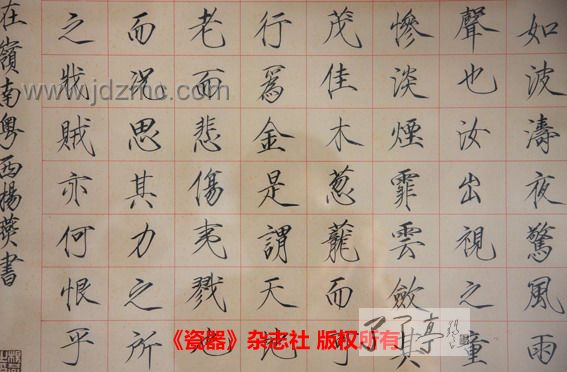 如波濤夜驚風雨
聲也汝出視之童
慘淡煙霏雲斂其
茂佳木葱蘢而可
行爲金是謂天地
老而悲傷夷戮也
而況思其力之所
之戕賊亦何恨乎
在嶺南粤西楊書
www.jdzmc.com
《瓷器》杂志社 版权所有
了了亭